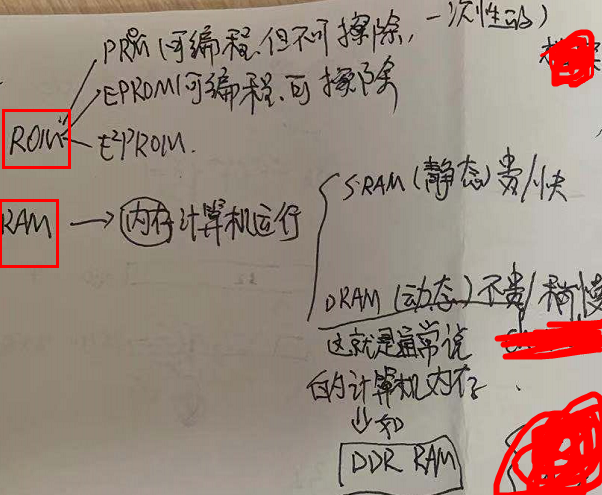 PROM (可编程.但不可擦除,一次性的)
EPROM(可编程.可擦除
ROM
E²PROM.
SRAM(静态)贵/快
RAM → 内存计算机运行
DRAM(动态)不贵/稍慢
这就是通常说
的计算机内存.
↓如
DDR RAM